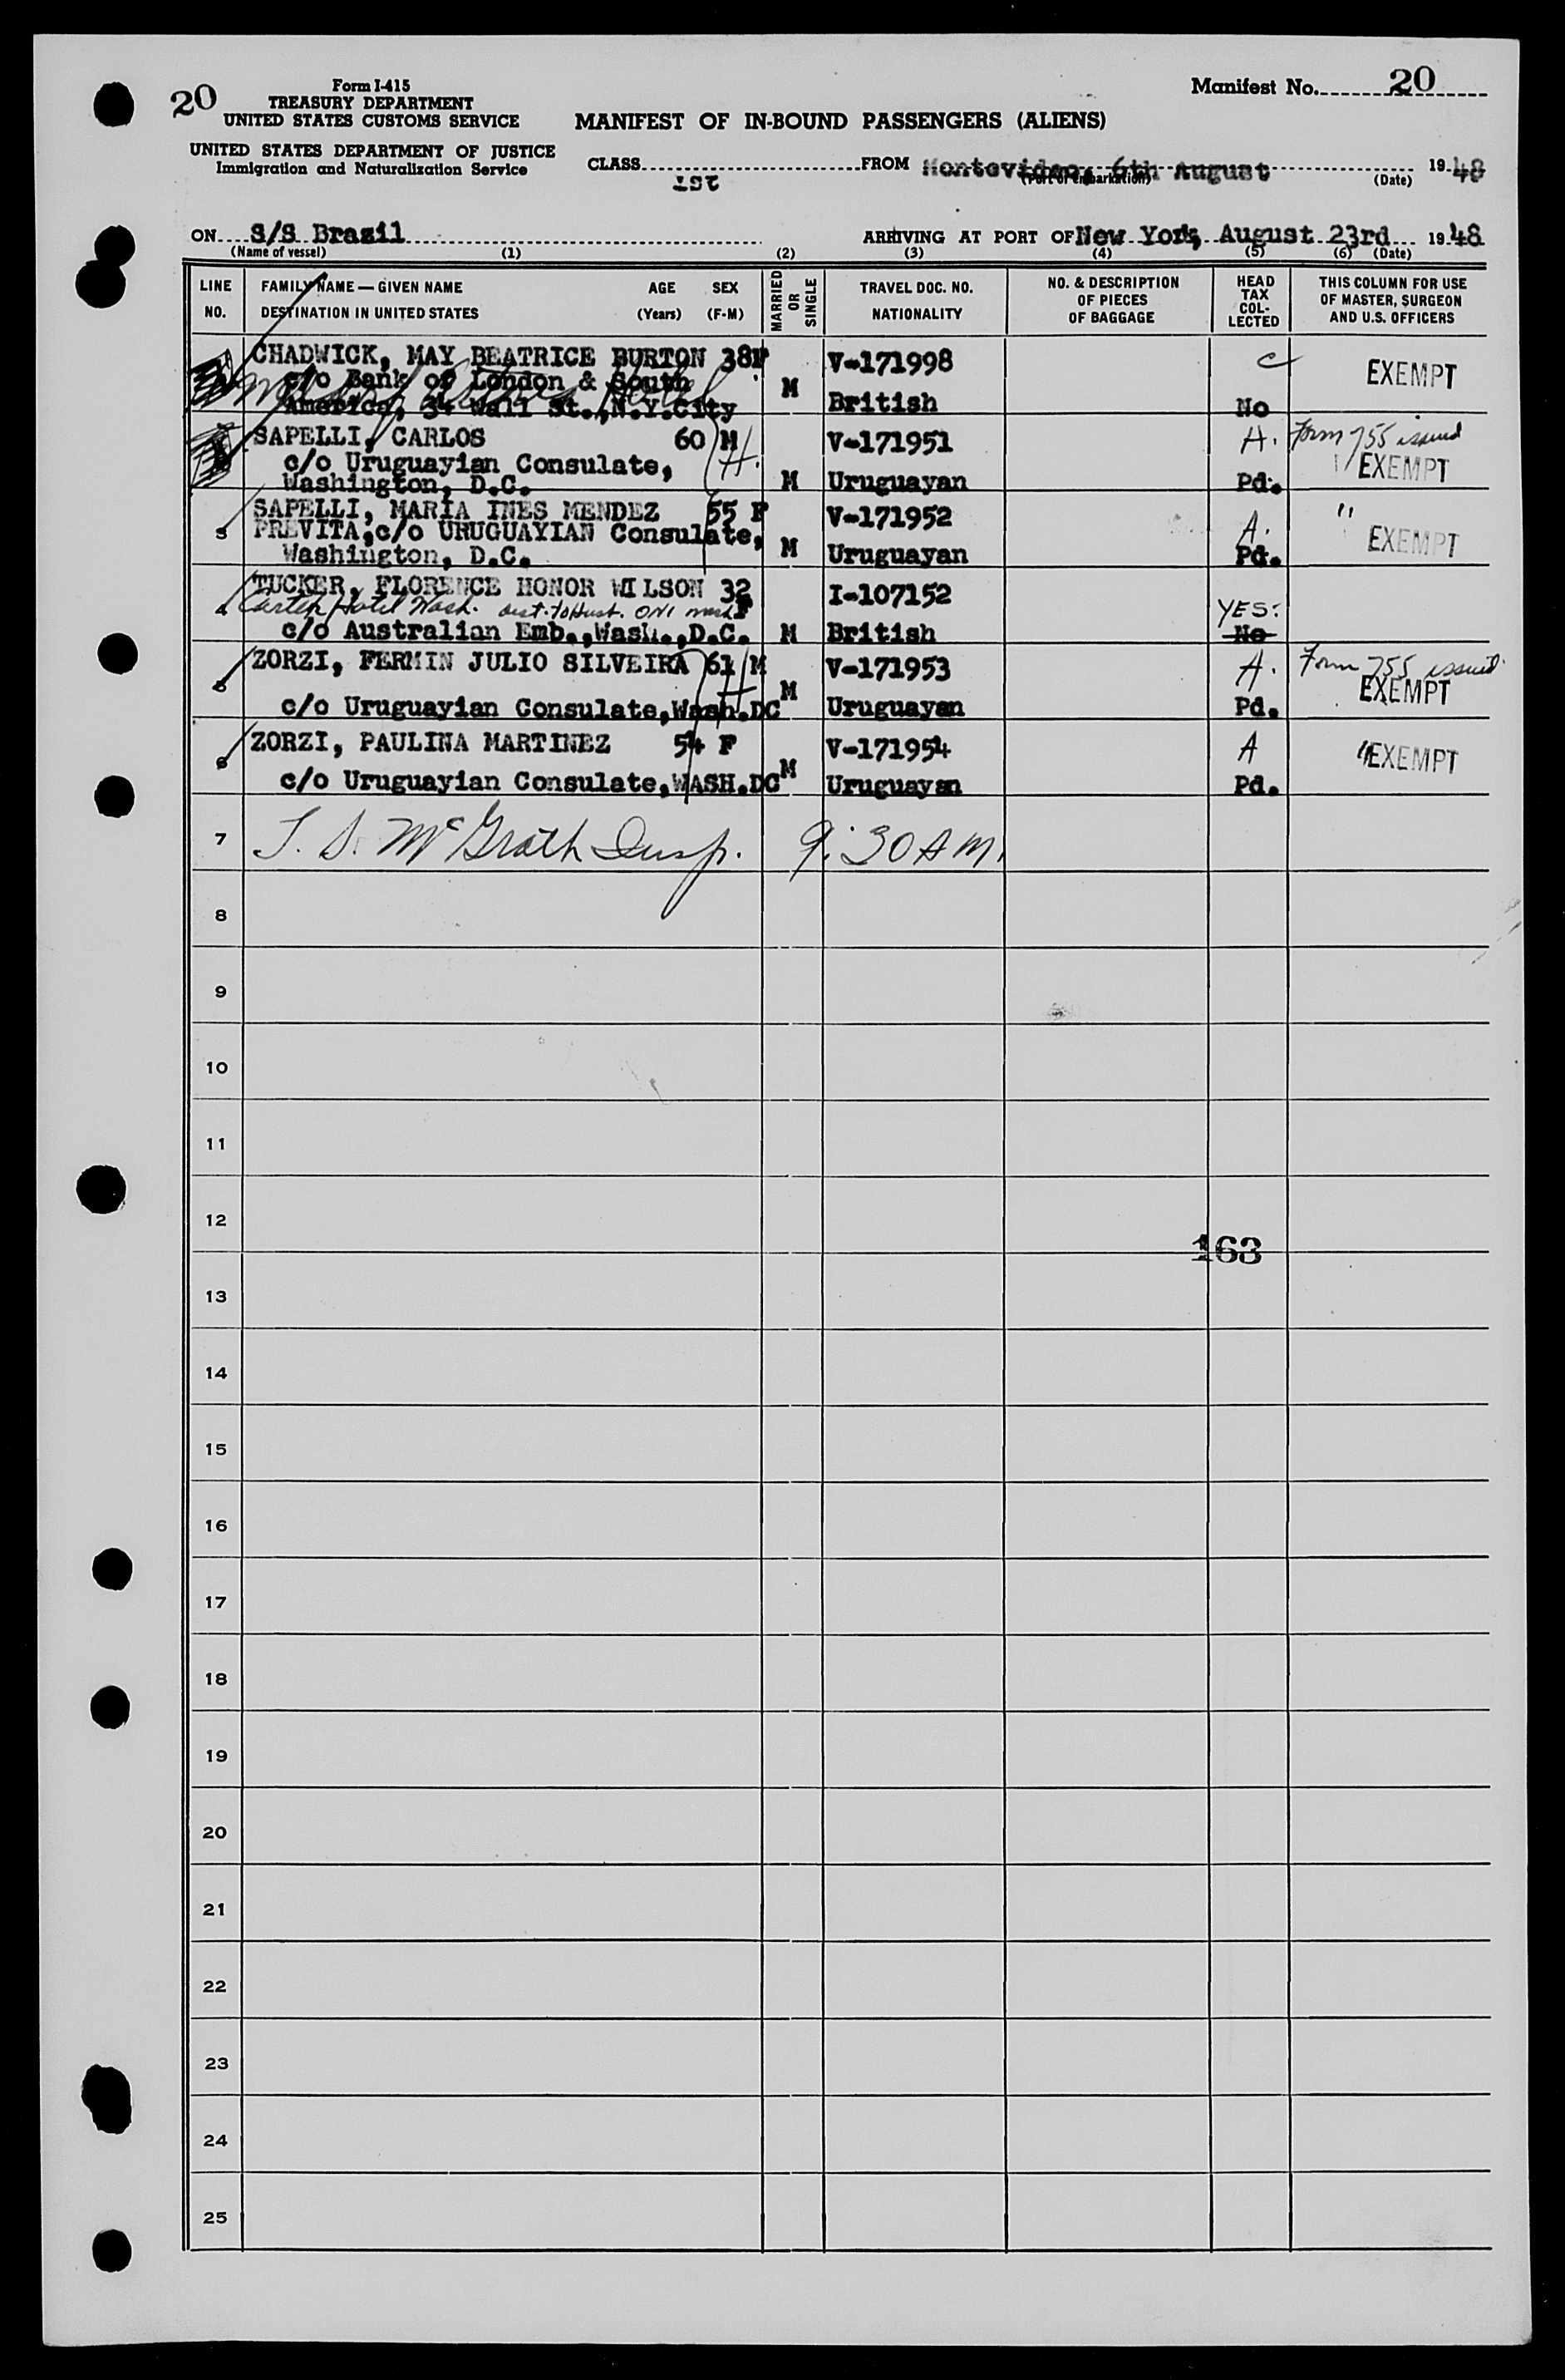 20
Form I-415
TREASURY DEPARTMENT
UNITED STATES CUSTOMS SERVICE
UNITED STATES DEPARTMENT OF JUSTICE
Immigration and Naturalization Service
Manifest No. 20
MANIFEST OF IN-BOUND PASSENGERS (ALIENS)
CLASS 1st FROM Montevideo, 6th August 19 48
(Port of embarkation) (Date)
ON S/S Brazil ARRIVING AT PORT OF New York, August 23rd 19 48
(Name of vessel) (1) (2) (3) (4) (5) (6) (Date)
LINE NO. FAMILY NAME — GIVEN NAME AGE SEX MARRIED OR SINGLE TRAVEL DOC. NO. NO. & DESCRIPTION OF PIECES OF BAGGAGE HEAD TAX COL- LECTED THIS COLUMN FOR USE OF MASTER, SURGEON AND U.S. OFFICERS
DESTINATION IN UNITED STATES (Years) (F-M) NATIONALITY
CHADWICK, MAY BEATRICE BURTON 38F V-171998 C EXEMPT
c/o Bank of London & South M
America, 34 Wall St., N.Y.City British No
SAPELLI, CARLOS 60 M V-171951 A. Form 755 issued
c/o Uruguayian Consulate, H. EXEMPT
Washington, D.C. M Uruguayan Pd.
SAPELLI, MARIA INES MENDEZ 55 F V-171952 "
3 PREVITA,c/o URUGUAYIAN Consulate, A. EXEMPT
Washington, D.C. M Uruguayan Pd.
TUCKER, FLORENCE HONOR WILSON 32 I-107152
4 Carter Hotel Wash. dest. to Hust. ONI F YES.
c/o Australian Emb.,Wash.,D.C. M British No
ZORZI, FERMIN JULIO SILVEIRA 61 M V-171953 A. Form 755 issued
5 H M EXEMPT
c/o Uruguayian Consulate,Wash.DC Uruguayan Pd.
ZORZI, PAULINA MARTINEZ 54 F V-171954 A " EXEMPT
6 c/o Uruguayian Consulate,WASH.DC M Uruguayan Pd.
7 J. S. McGrath Insp. 9:30 AM.
8
9
10
11
12
163
13
14
15
16
17
18
19
20
21
22
23
24
25